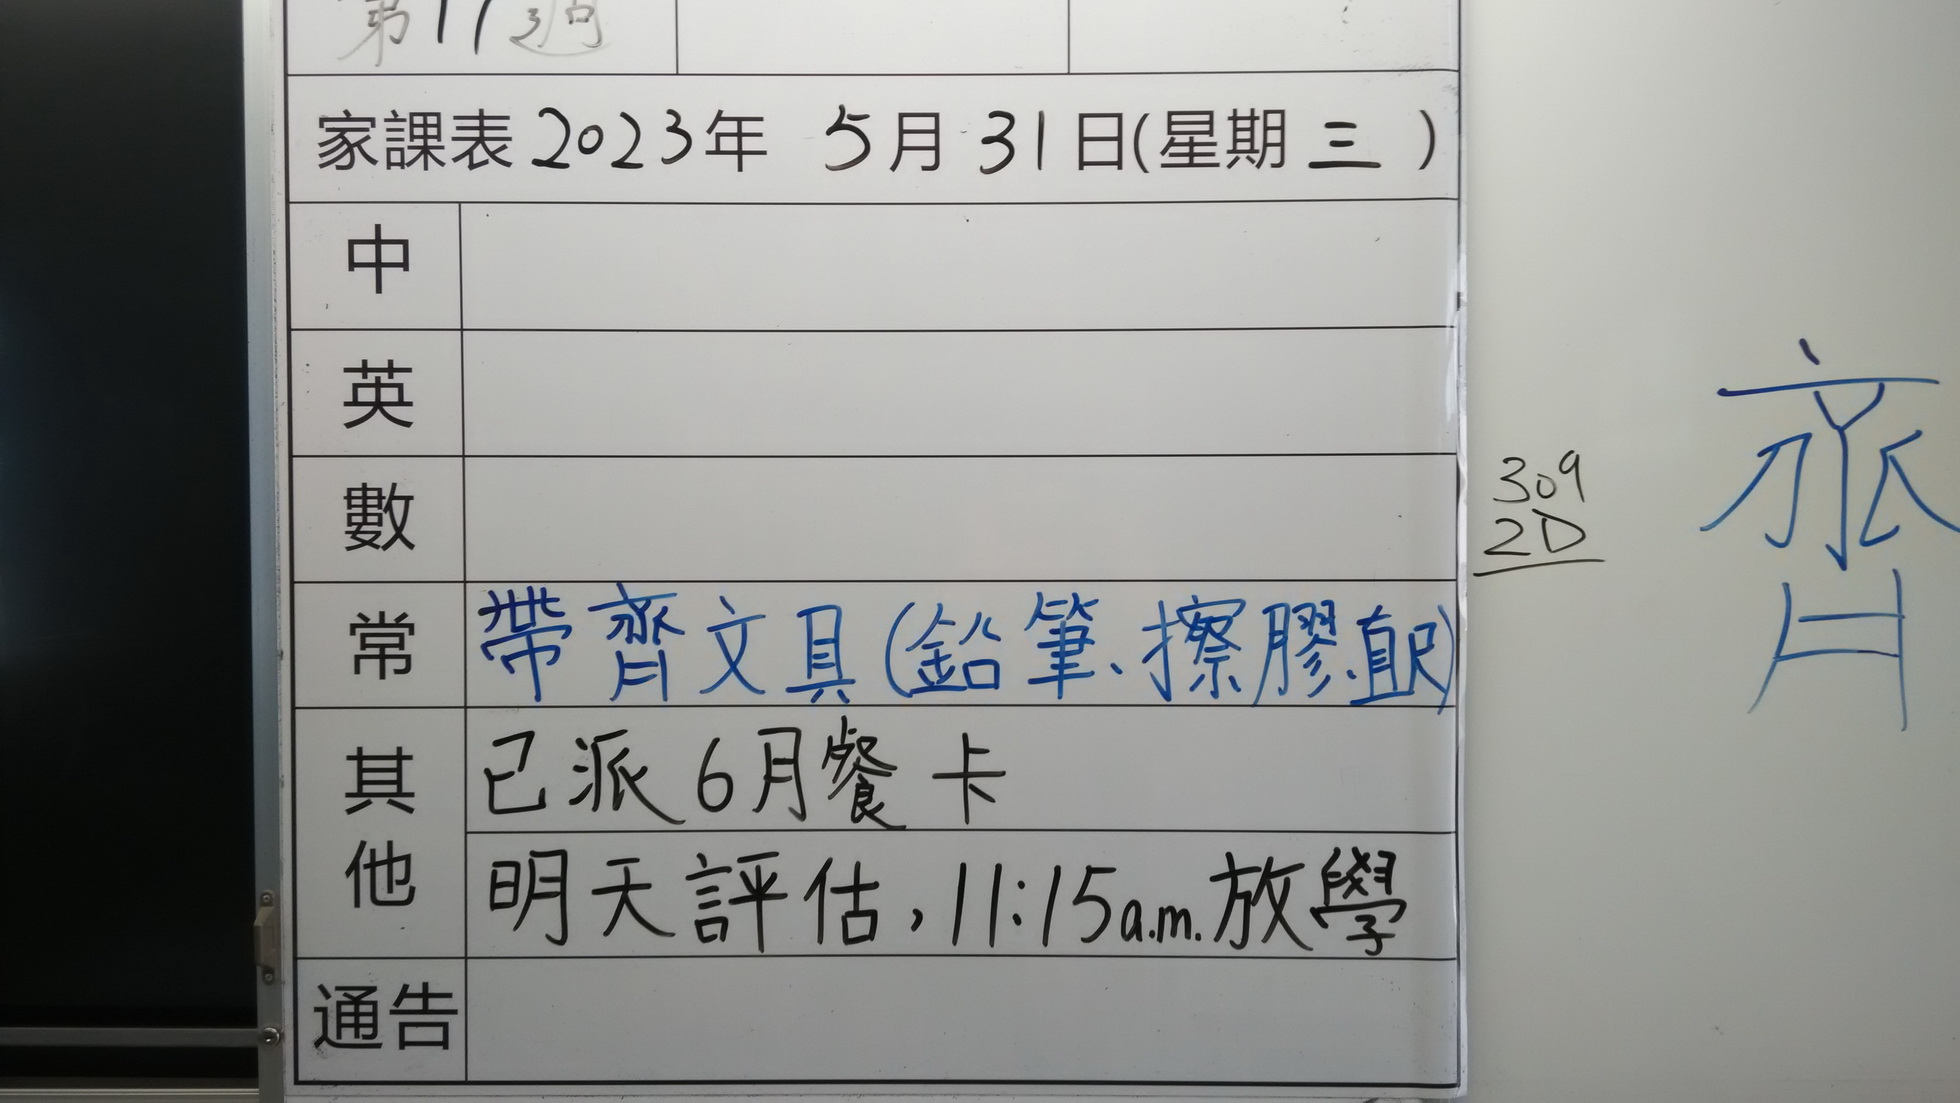 第17週
家課表2023年 5月31日(星期三)
中
英
數
常 帶齊文具(鉛筆、擦膠、直尺)
其他
已派6月餐卡
明天評估,11:15a.m.放學
通告
309
2D
齊